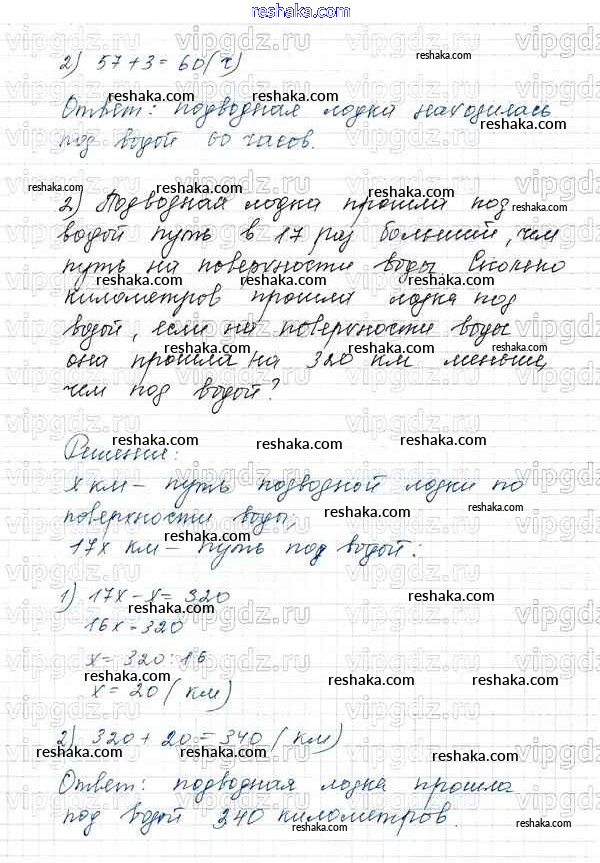 reshaka.com
2) 57 + 3 = 60 (ч)
Ответ: подводная лодка находилась
под водой 60 часов.
2) Подводная лодка прошла под
водой путь в 17 раз больший, чем
путь на поверхности воды. Сколько
километров прошла лодка под
водой, если на поверхности воды
она прошла на 320 км меньше,
чем под водой?
Решение:
x км — путь подводной лодки по
поверхности воды;
17x км — путь под водой:
1) 17x - x = 320
16x = 320
x = 320 : 16
x = 20 (км)
2) 320 + 20 = 340 (км)
Ответ: подводная лодка прошла
под водой 340 километров.